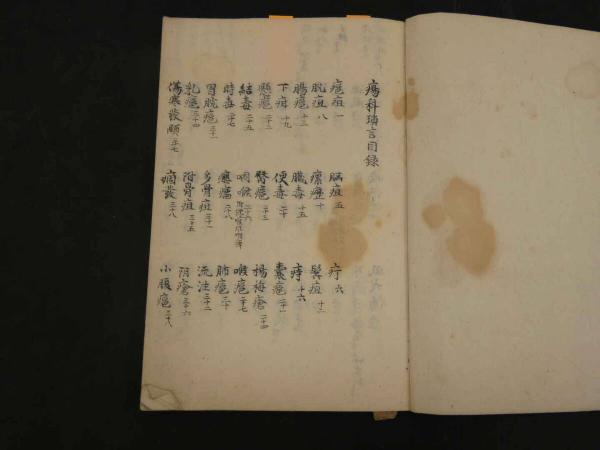 瘍科瑣言目録
癰疽 一 腦疽 五 疔 六
脱疽 八 瘰癧 十 鬢疽 十二
腸癰 十三 臓毒 十五 痔 十六
下疳 十九 便毒 二十 嚢癰 二十一
懸癰 二十三 臀癰 二十三 楊梅瘡 二十四
結毒 二十五 咽喉 二十六 喉癰 二十七
時毒 二十七 癭瘤 二十八 肺癰
胃脘癰 三十一 多骨疽 三十一 流注 三十二
乳癰 三十四 附骨疽 三十五 陰瘡 三十六
傷寒發頤 三十七 痼發 三十八 小腹癰 三十八